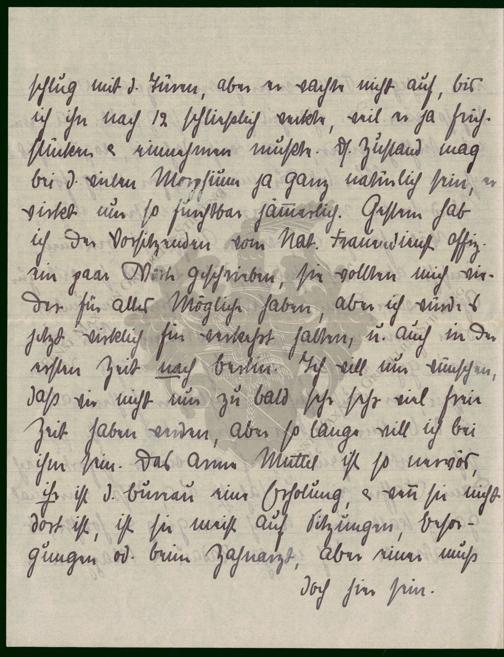 schlug mit d. Türen, aber er wachte nicht auf, bis
ich ihn nach 12 schließlich weckte, weil er ja früh-
stücken & einnehmen mußte. Df. Zustand mag
bei d. vielen Morphium ja ganz natürlich sein, er
wirkt nur so furchtbar jämmerlich. Gestern hab
ich der Vorsitzenden vom Nat. Frauendienst offiz.
ein paar Worte geschrieben, sie wollten mich wie-
der für alles Mögliche haben, aber ich würde es
jetzt wirklich für verkehrt halten, u. auch in der
ersten Zeit nach berlin. Ich will nur wünschen,
daß wir nicht nur zu bald sehr sehr viel freie
Zeit haben werden, aber so lange will ich bei
ihm sein. Das arme Muttel ist so nervös,
ihr ist d. bureau eine Erholung & weñ sie nicht
dort ist, ist sie meist auf Sitzungen, besor-
gungen od. beim Zahnarzt, aber einer muß
doch hier sein.